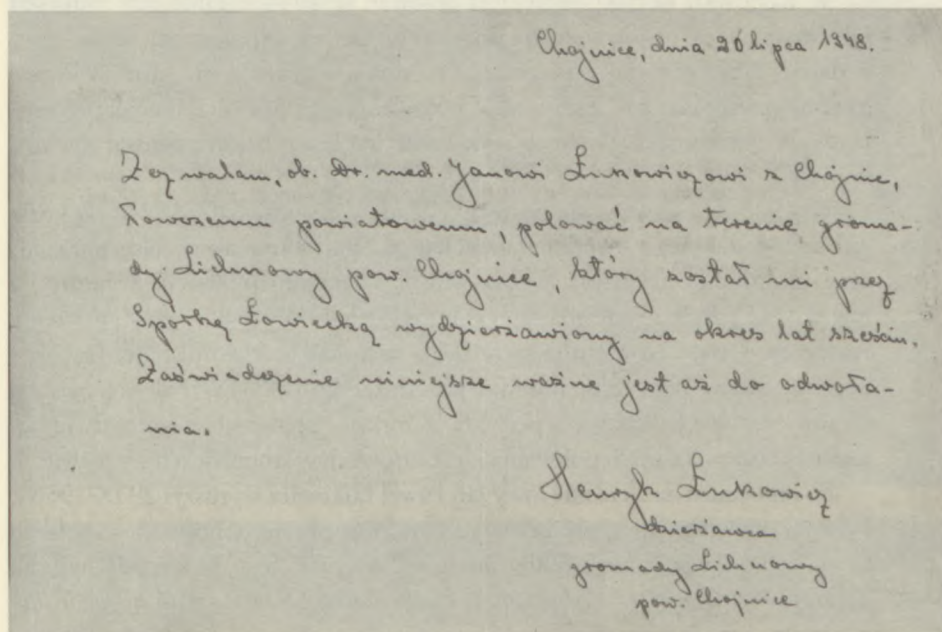 Chojnice, dnia 20 lipca 1948.
Zezwalam, ob. Dr. med. Janowi Łukowiczowi z Chojnic,
Łowczemu powiatowemu, polować na terenie groma-
dy Lichnowy pow. Chojnice, który został mi przez
Spółkę Łowiecką wydzierżawiony na okres lat sześciu.
Zaświadczenie niniejsze ważne jest aż do odwoła-
nia.
Henryk Łukowicz
dzierżawca
gromady Lichnowy
pow. Chojnice